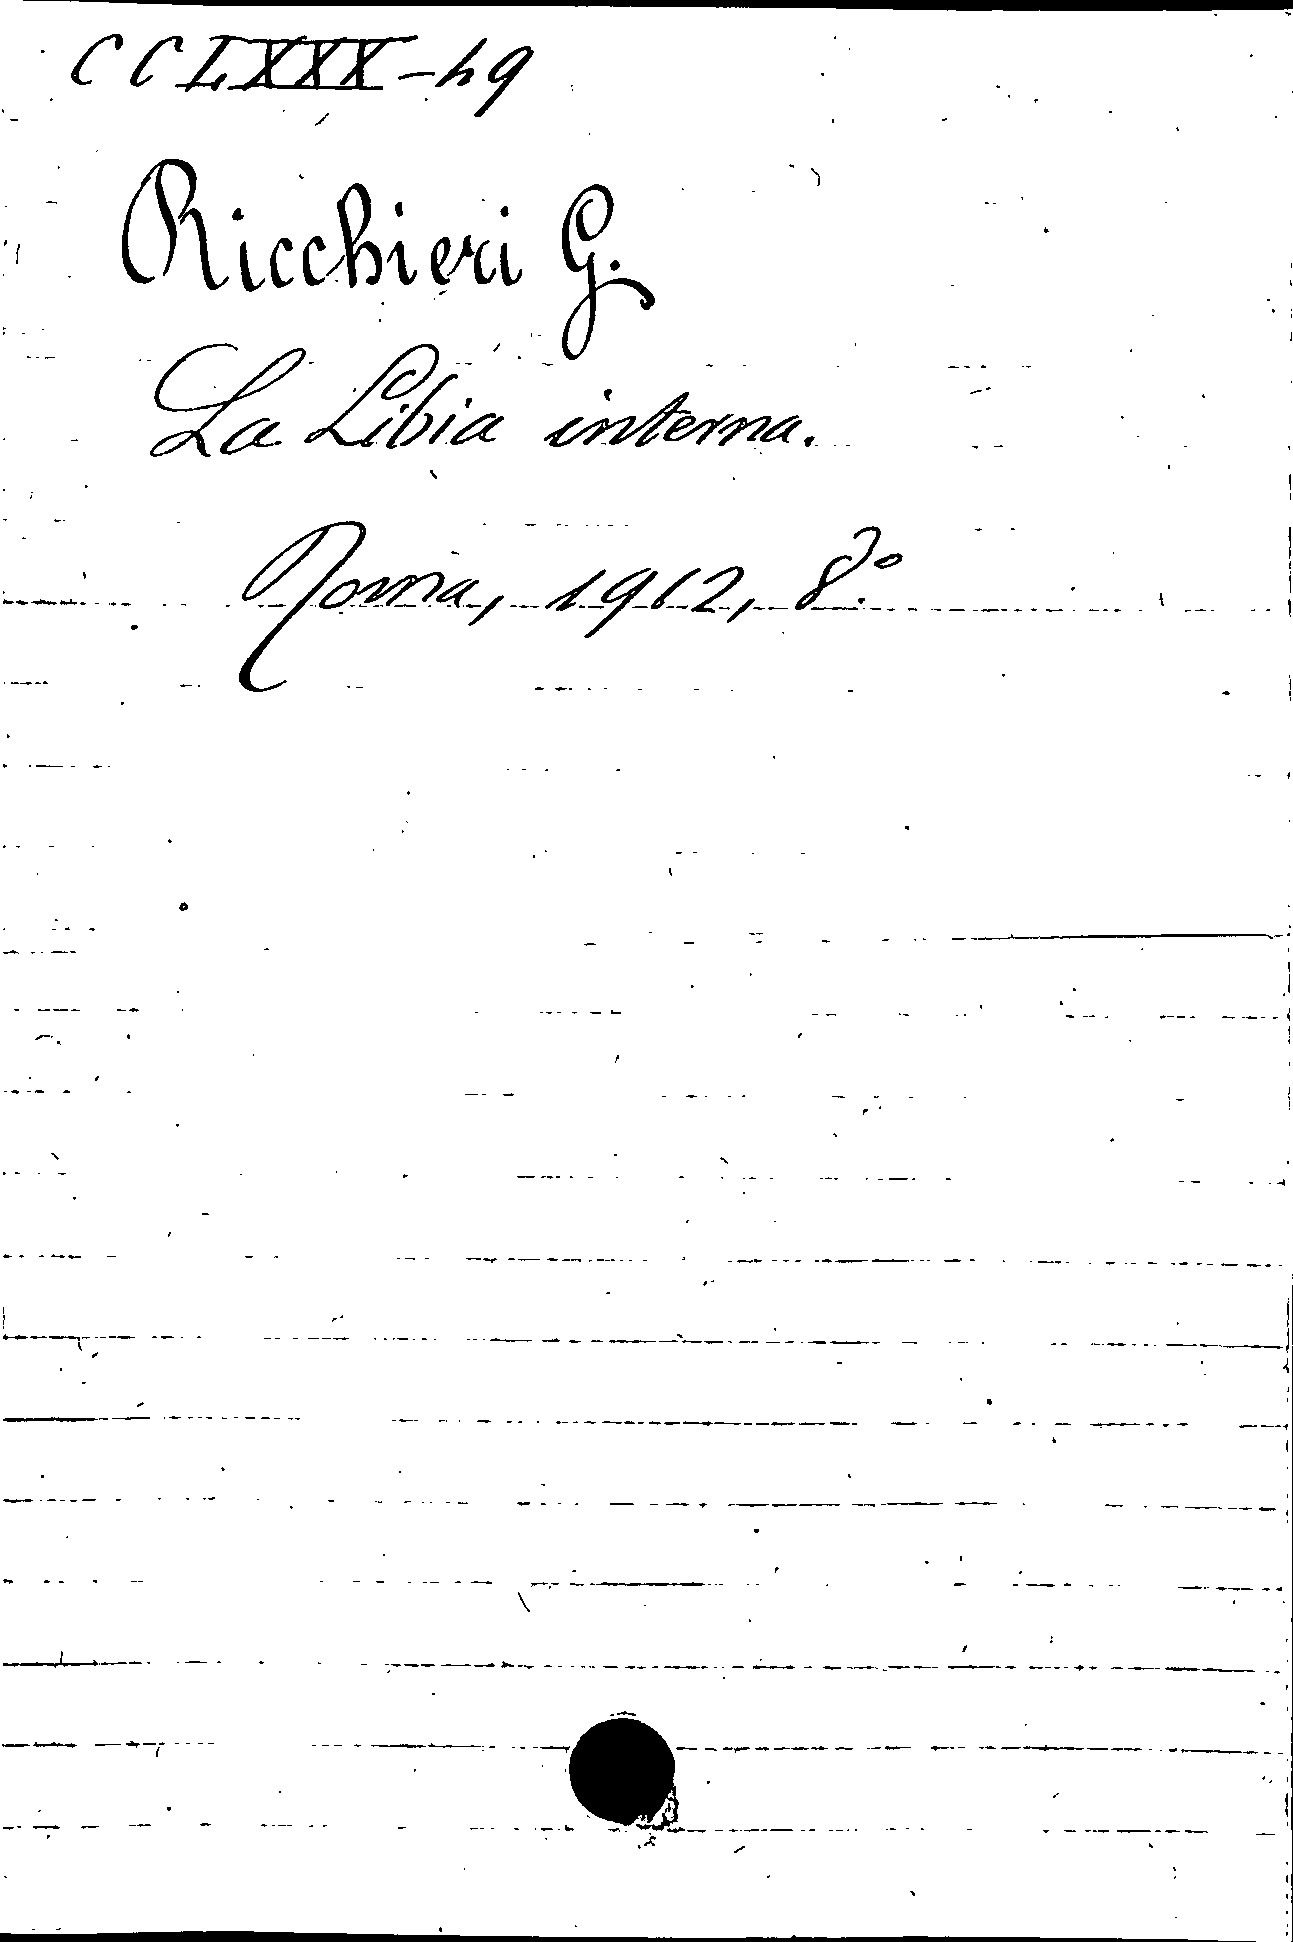 CCLXXX-49
Ricchieri G.
La Libia interna.
Roma, 1912, 8.°